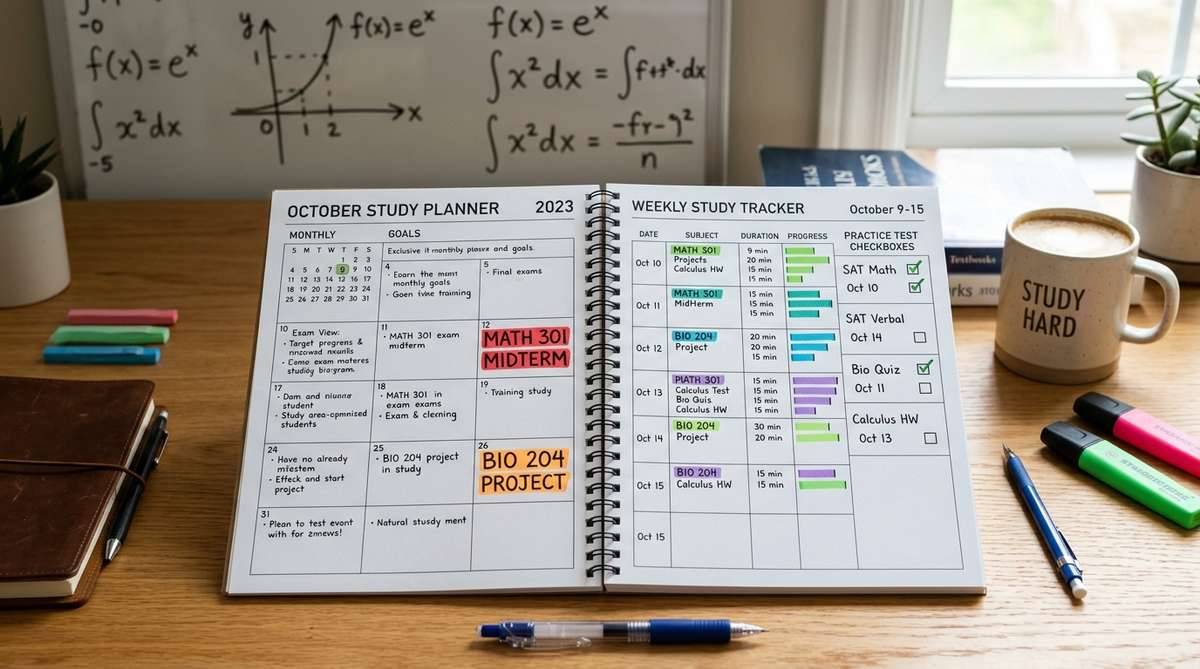 -0
f(x)=eˣ
∫ x²dx
-5
y
f(x)=eˣ
1
0 1 2 x
f(x)=eˣ
∫x²dx =
∫x²dx =
n
OCTOBER STUDY PLANNER 2023
MONTHLY GOALS
S M T W T F S
1 2 3
4 5 6 7 9 9 10
11 12 13 14 15 16 17
18 19 20 21 22 23 24
25 26 27 28 29 30 31
Exclusive it monthly and goals.
4
• Eorn the monthly goals
• Goen training
5
• Final exams
10
Exam View:
• Target progrens &
• Come exam materes
11
• MATH 301 exam
midterm
12
MATH 301
MIDTERM
17
• Dam and
student
• Study
students
18
• MATH 301 in
exam exams
• Exam & clerning
19
• Training study
24
• Have no already
• Effeck and start
project
25
• BIO 204 project
in study
26
BIO 204
PROJECT
31
• Plean to test evont
with for
• Natural stusdy ment
WEEKLY STUDY TRACKER October 9-15
DATE SUBJECT DURATION PROGRESS
Oct 10
MATH 501 9 min
Projects 20 min
Calculus HW 15 min
15 min
Oct 11
MATH 301 15 min
MidHerm 15 min
15 min
Oct 12
BIO 204 20 min
Project 20 min
15 min
Oct 13
MATH 301 15 min
Calculus Test 15 min
Bio Quis 15 min
Calculus HW 15 min
Oct 14
BIO 204 30 min
Project 20 min
Oct 15
BIO 204 15 min
Calculus HW 15 min
Oct 15
PRACTICE TEST
CHECKBOXES
SAT Math
Oct 10
SAT Verbal
Oct 14
Bio Quiz
Oct 11
Calculus HW
Oct 13
STUDY
HARD